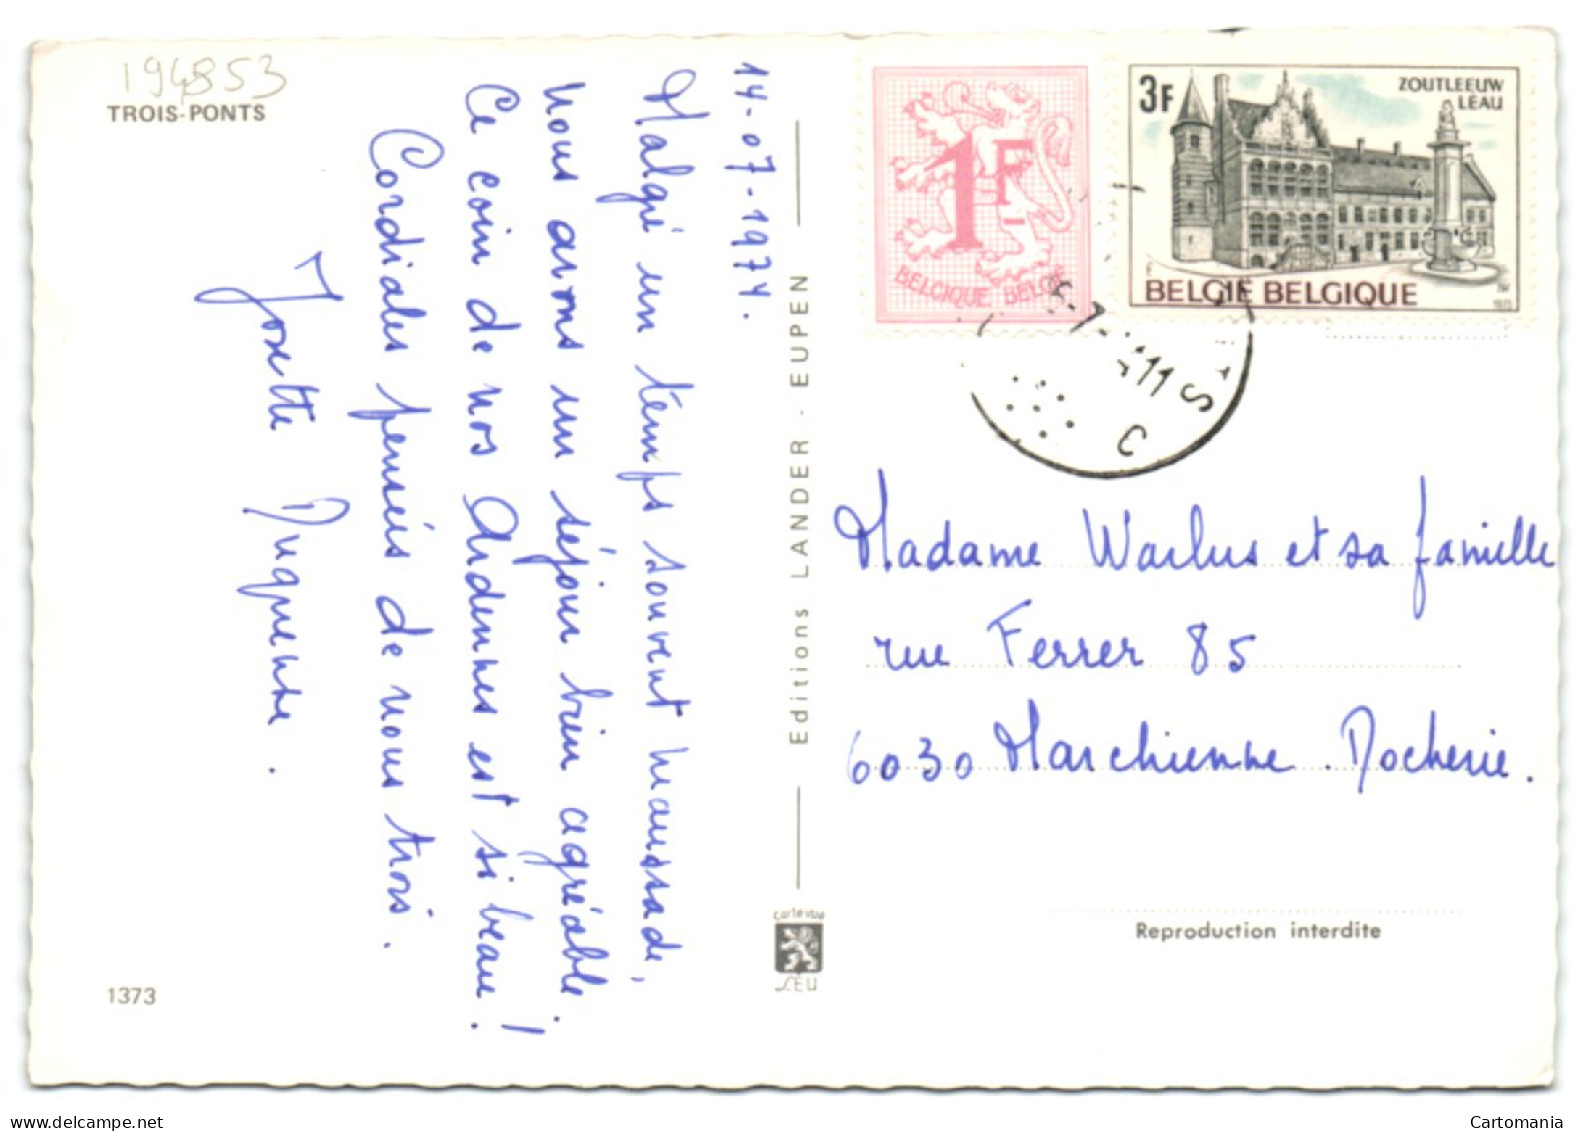 194853
TROIS-PONTS
14-07-1974.
Malgré un temps souvent maussade,
nous avons un séjour bien agréable.
Ce coin de nos Ardennes est si beau !
Cordiales pensées de nous trois.
Josette Duquenne.
1373
Editions LANDER - EUPEN
carte vue
LEU
1F
BELGIQUE BELGIË
3F
ZOUTLEEUW
LÉAU
BELGIË BELGIQUE
1973
Madame Warlus et sa famille
rue Ferrer 85
6030 Marchienne. Docherie.
Reproduction interdite
www.delcampe.net
Cartomania